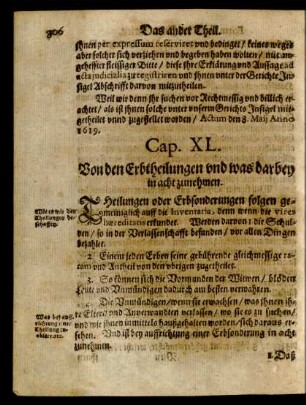 306 Das ander Theil.
ihnen per expressum reserviret vnd bedinget / keines weges
aber solcher sich verziehen vnd begeben haben wolten / mit an-
geheffter fleissiger Bitte / diese ihre Erklärung vnd Aussage ad
acta judicialia zu registriren vnd ihnen vnter der Gerichte In-
sigel Abschrifft darvon mitzutheilen.
Weil wir denn ihr suchen vor Rechtmessig vnd billich er-
achtet / als ist ihnen solche vnter vnsern Gerichts Insigel mit-
getheilet vnnd zugestellet worden / Actum den 8. Maij Anno
1619.
Cap. XL.
Von den Erbtheilungen vnd was darbey
in acht zunehmen.
Wie es mit der
Theilungen be-
schaffen.
THeilungen oder Erbsonderungen folgen ge-
meiniglich auff die Inventaria, denn wenn die vires
hæreditatis erkundet. Werden darvon die Schul-
den / so in der Verlassenschafft befunden / vor allen Dingen
bezahlet.
2. Einem jeden Erben seine gebührende gleichmessige ra-
tum vnd Antheil von den vbrigen zugetheilet.
3. So können sich die Vormunden der Witwen / blöden
Leute vnd Vnmündigen dadurch am besten verwahren.
Was bey auff-
richtung einer
Theilung zu
Die Vnmündigen / wenn sie erwachsen / was ihnen ih-
re Eltern vnd Anverwandten verlassen / wo sie es zu suchen /
vnd wie ihnen inmittels haußgehalten worden / sich daraus er-
sehen. Vnd ist bey auffrichtung einer Erbsonderung in acht
zunehmen.
1. Daß